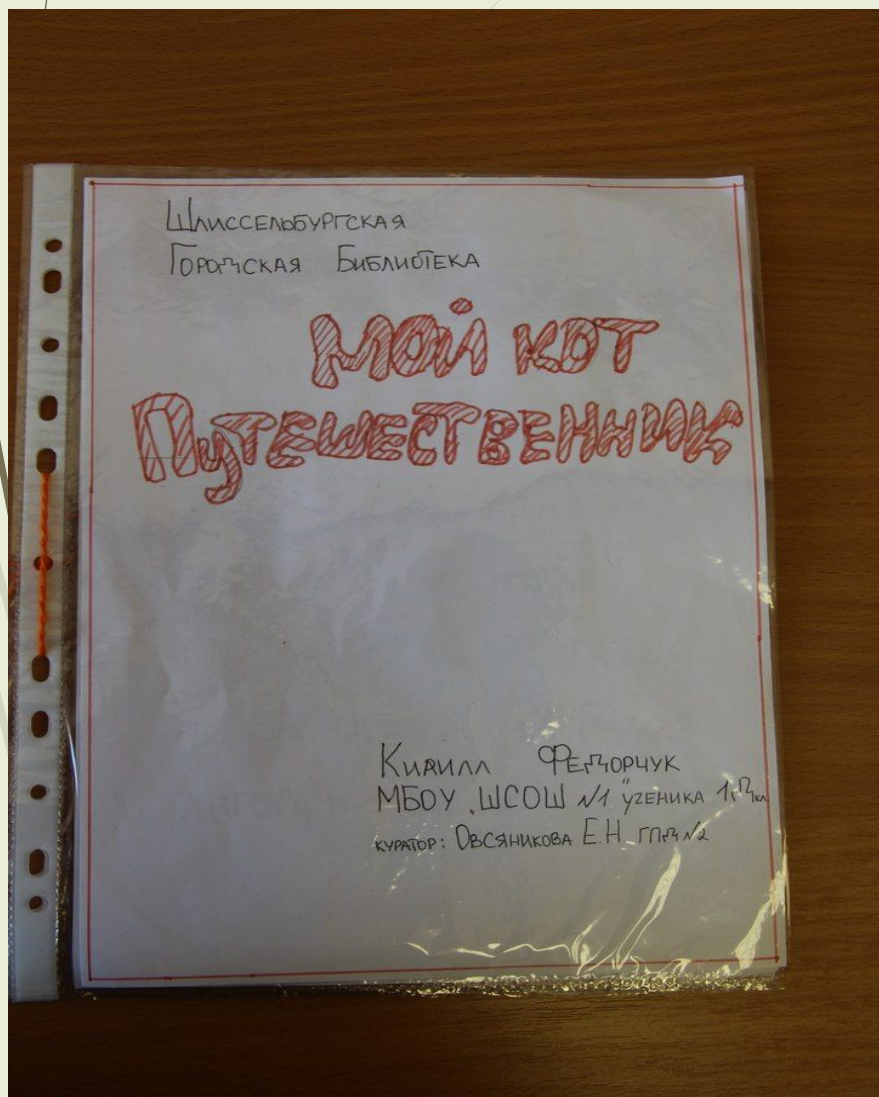 Шлиссельбургская
Городская Библиотека
Мой кот
Путешественник
Кирилл Федорчук
МБОУ „ШСОШ №1" ученика 1 „Д" кл
куратор: Овсяникова Е.Н ГПД №2